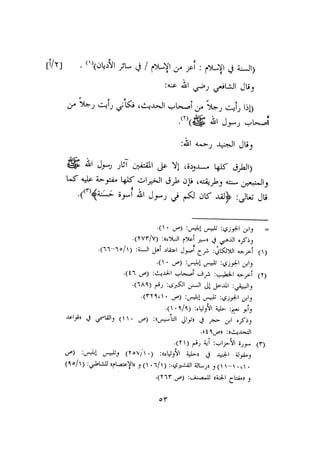 (السنة في الإسلام : أعز من الإسلام / في سائر الأديان)(١) . [٢/أ]
وقال الشافعي رضي الله عنه:
(إذا رأيت رجلاً من أصحاب الحديث، فكأني رأيت رجلاً من
أصحاب رسول الله ﷺ)(٢).
وقال الجنيد رحمه الله:
(الطرق كلها مسدودة، إلا على المقتفين آثار رسول الله ﷺ
والمتبعين سنته وطريقته، فإن طرق الخيرات كلها مفتوحة عليه كما
قال تعالى: ﴿لقد كان لكم في رسول الله أسوة حَسَنة﴾(٣).
= وابن الجوزي: تلبيس إبليس: (ص ١٠).
وذكره الذهبي في «سير أعلام النبلاء»: (٢٧٣/٧).
(١) أخرجه اللالكائي: شرح أصول اعتقاد أهل السنة: (٦٥/١-٦٦).
وابن الجوزي: تلبيس إبليس: (ص ١٠).
(٢) أخرجه الخطيب: شرف أصحاب الحديث: (ص ٤٦).
والبيهقي: المدخل إلى السنن الكبرى: رقم (٦٨٩).
وابن الجوزي: تلبيس إبليس: (ص ١٠،٣٢٩).
وأبو نعيم: حلية الأولياء: (١٠٩/٩).
وذكره ابن حجر في «توالي التأسيس»: (ص ١١٠) والقاسمي في «قواعد
التحديث»: «ص٤٩».
(٣) سورة الأحزاب: آية رقم (٢١).
ومقولة الجنيد في «حلية الأولياء»: (٢٥٧/١٠) وتلبيس إبليس: (ص
١٠،١٠-١١) و «رسالة القشيري»: (١٠٦/١) و «الإعتصام» للشاطبي: (٩٥/١)
و «مفتاح الجنة» للمصنف: (ص ٢٦٣).
٥٣